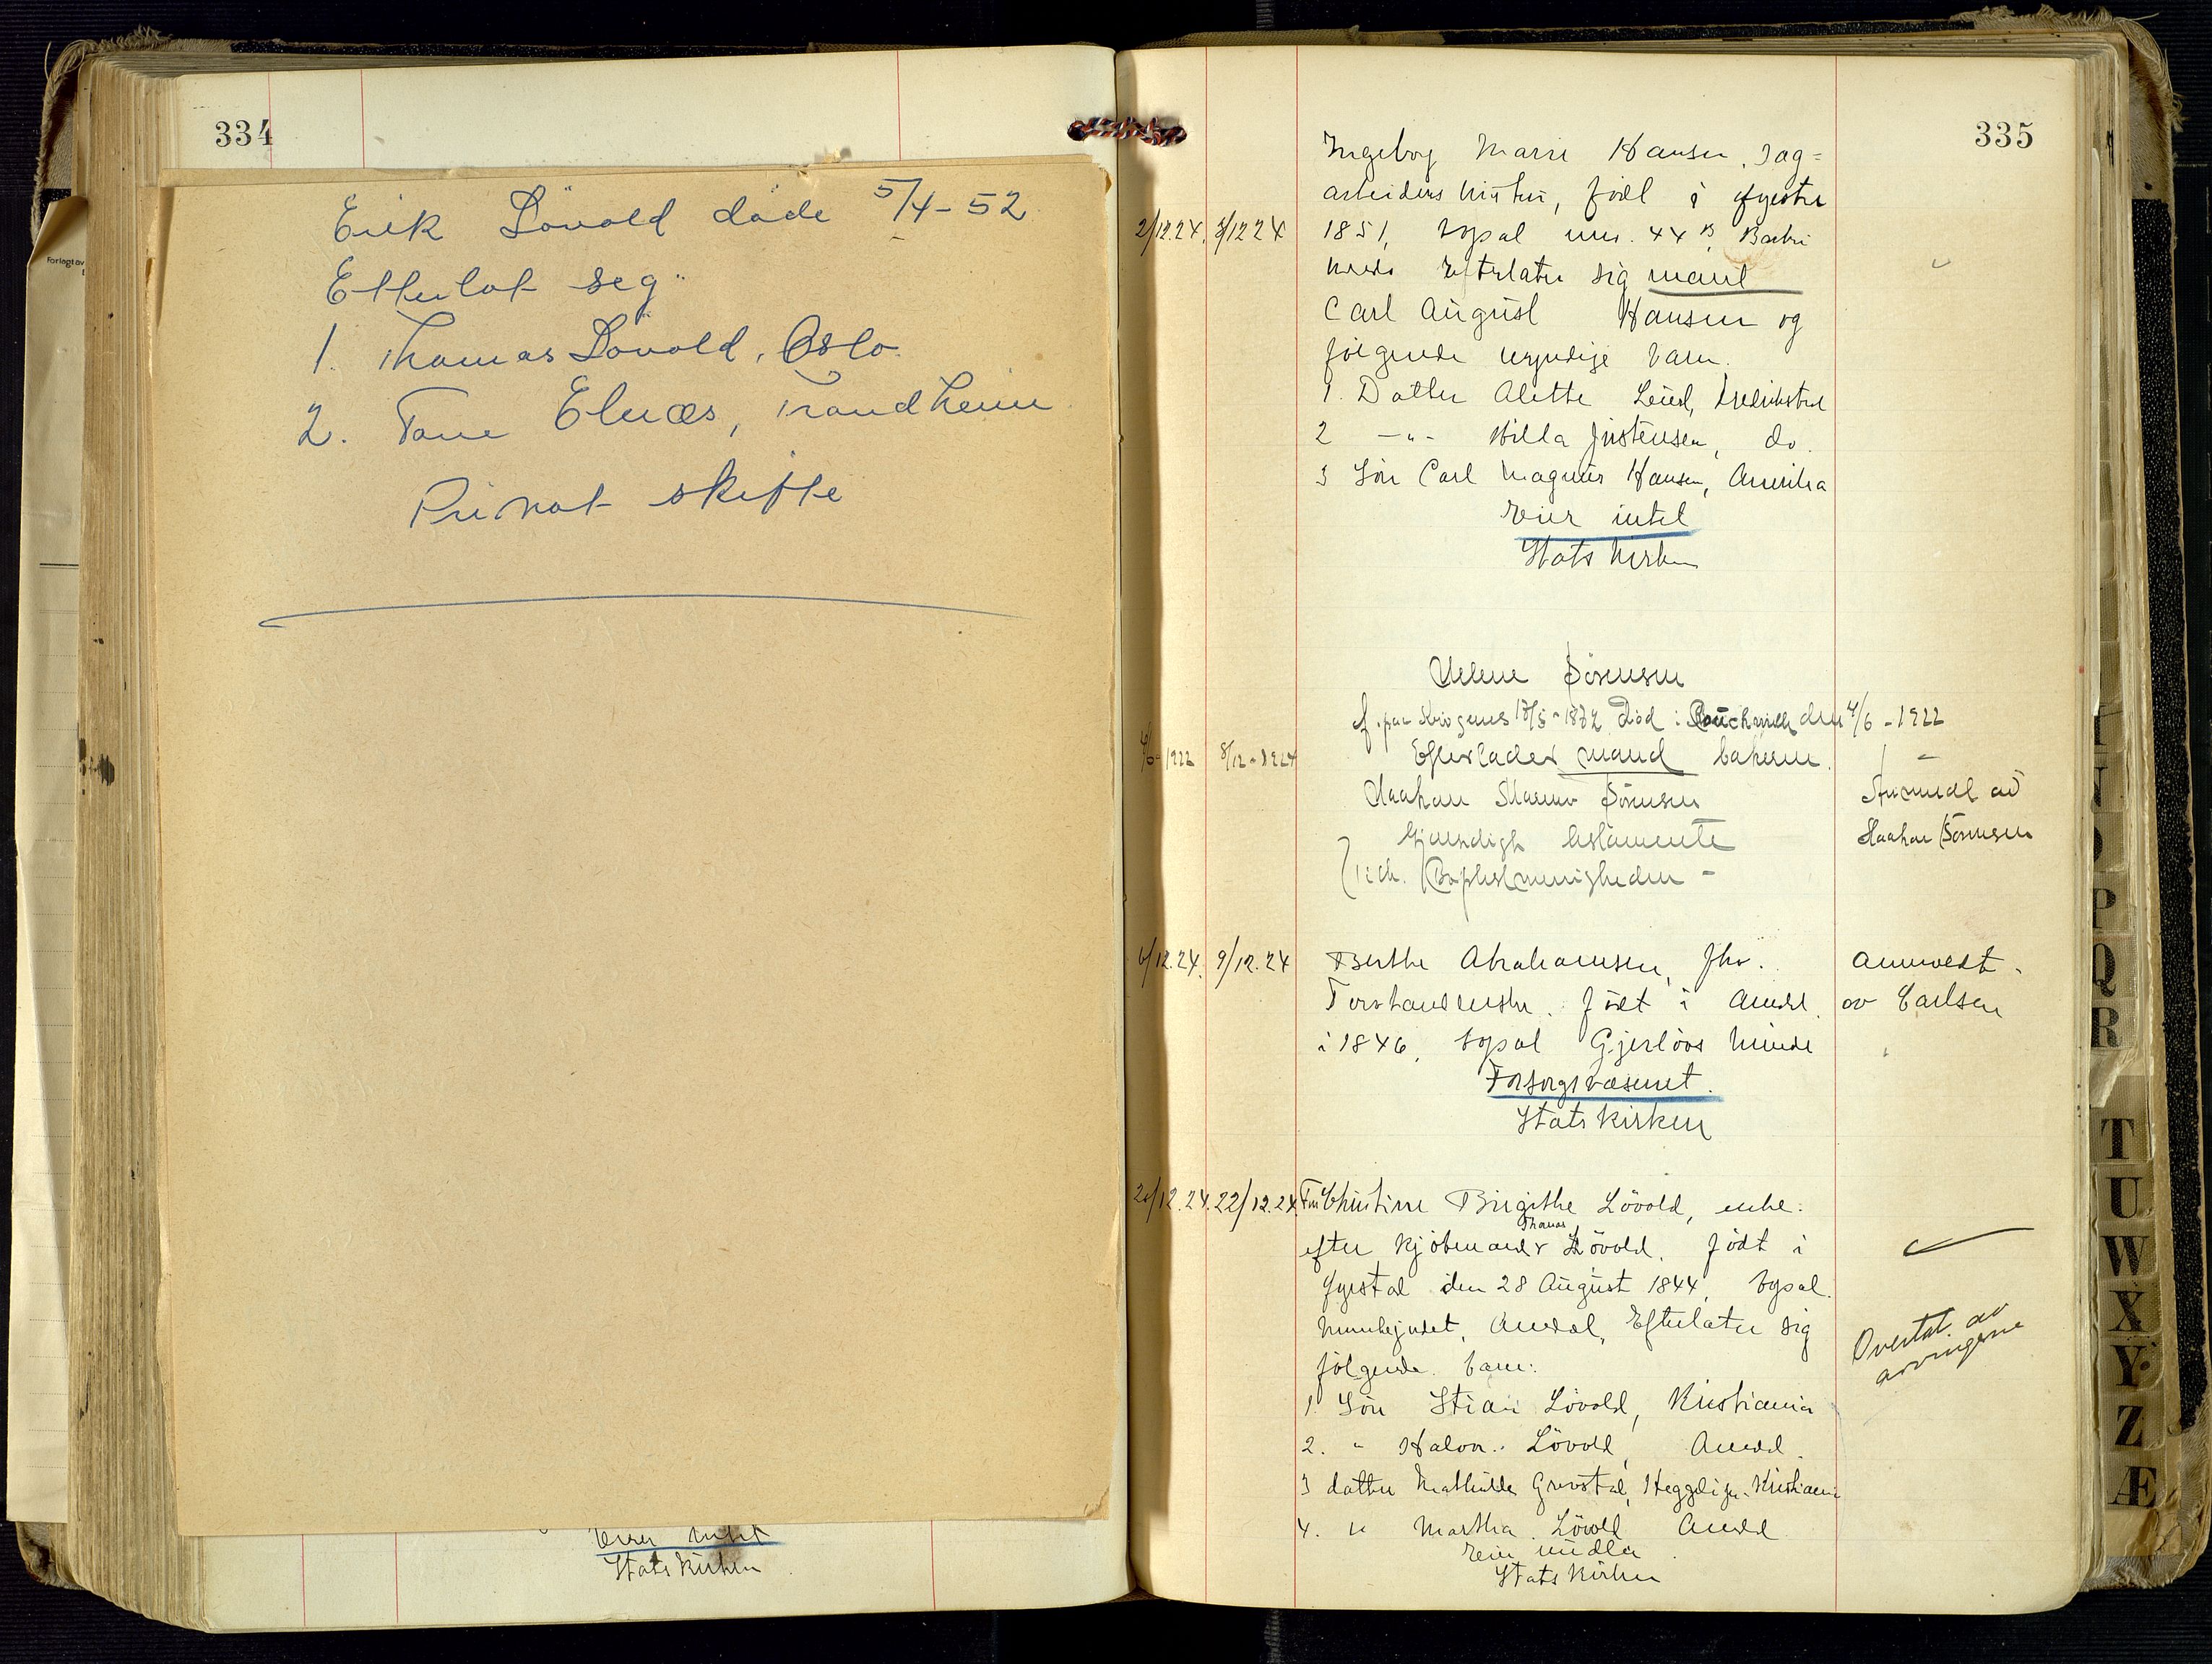 334
Erik Lövold döde 5/4-52
Etterlot seg:
1. Thomas Lövold, Oslo.
2. Tove Elnæs, Trondheim
Privat skifte
Eier intet
Statskirken
335
Ingeborg Marie Hansen, Dag=
arbeiders hustru, född i
2/12.24. 3/12 24 1851, bopæl 44 B,
Efterlater sig mand
Carl August Hansen og
følgende myndige barn.
1. Datter Alette Lund, Fredrikstad
2 -"- Hilda Justensen, do.
3 Sön Carl Magnus Hansen, Amerika
Eier intet
Statskirken
Helene Sörensen
f. paa 1872 död i den 4/6-1922
4/6-1922 8/12-1924 Efterlader mand bakerm.
Haakon Sörensen
Gjensidigh testamente
Baptistmenigheden -
Anmeldt av
Haakon Sörensen
6/12.24. 9/12.24 Berthe Abrahamsen, fhv.
Forstanderske. født i Arendal.
i 1846, bopæl Gjerløvs Minde
Forsorgsvæsenet.
Statskirken
Anmeldt.
av Carlsen
20/12.24. 22/12.24. Fru Christine Birgithe Lövold, enke
efter kjöbmand Thomas Lövold. Födt i
Fyrestal den 28 August 1844, bopæl
Arendal, Efterlater sig
følgende barn:
1 Sön Stian Lövold, Kristiania
2. " Halvor Lövold, Arendal.
3 datter Mathilde Kristiania
4. " Martha Lövold Arendal
Eier midler
Statskirken
Overtat av
arvingerne
T
U
W
X
Y
Z
Æ
N
O
P
Q
R